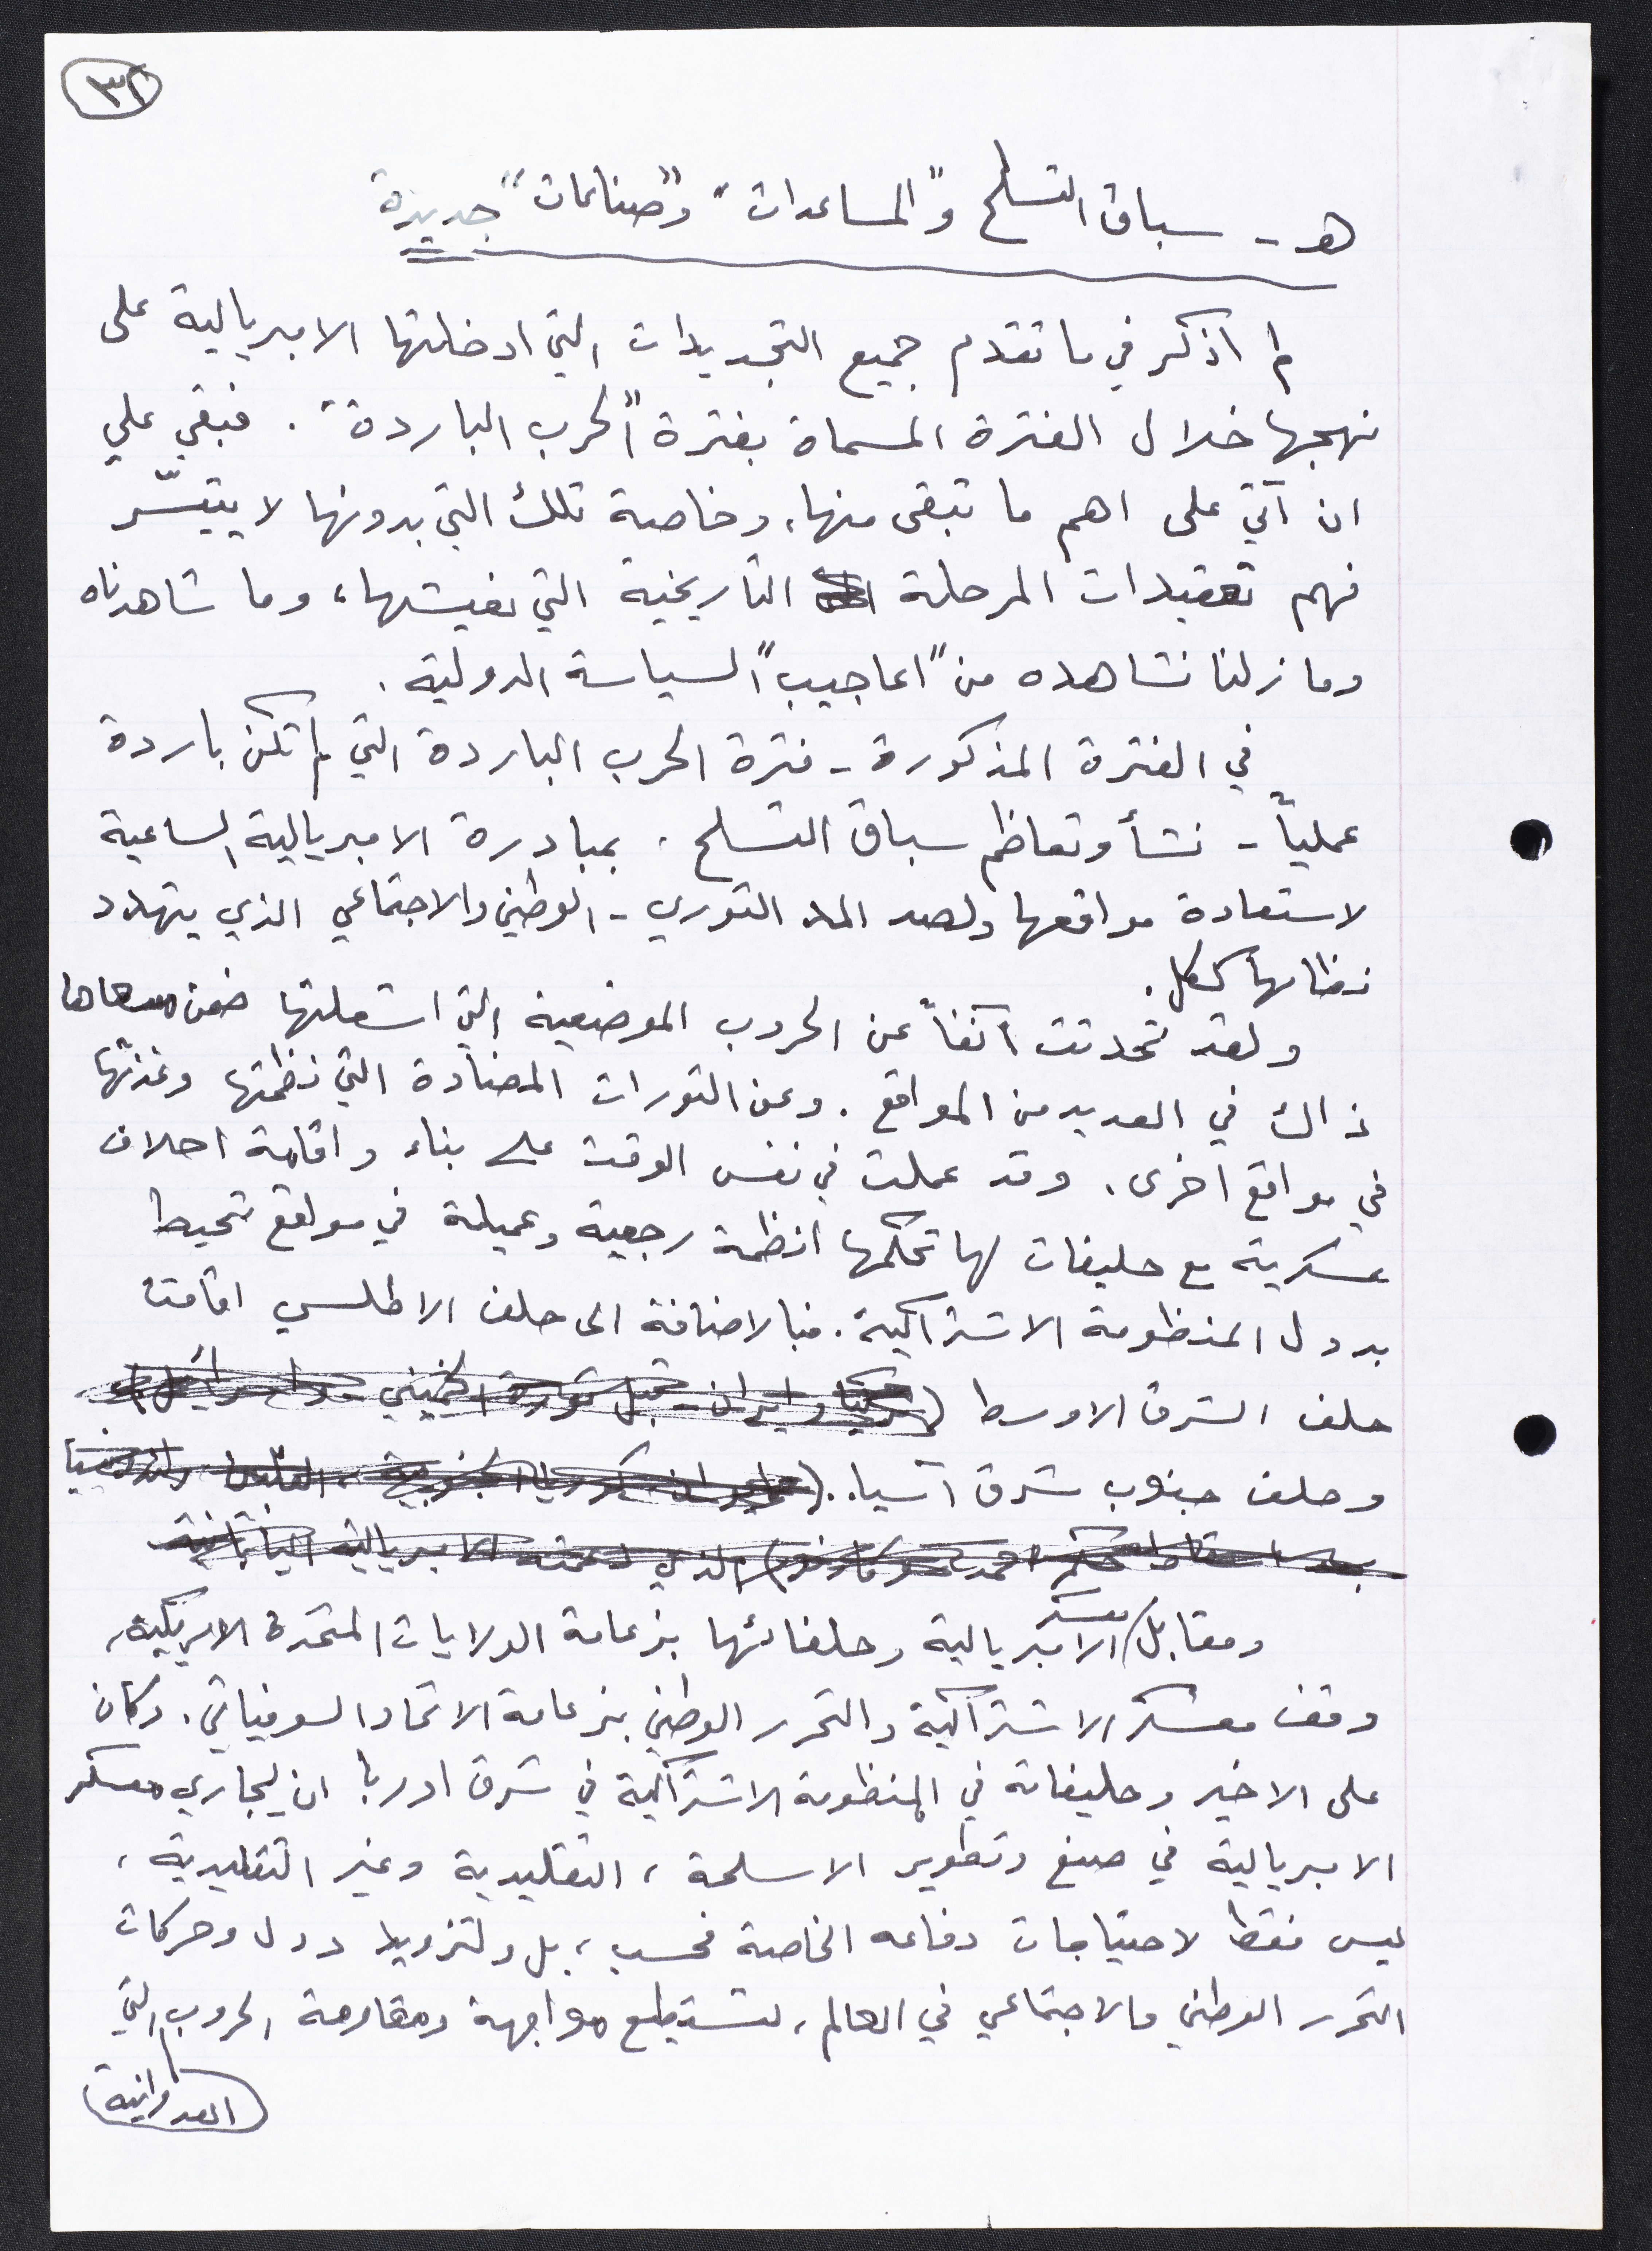 ٣٢
هـ - سباق التسلح و"المساعدات" و"صناعات" جديدة
لم اذكر في ما تقدم جميع التجديدات التي ادخلتها الامبريالية على
نهجها خلال الفترة المسماة بفترة "الحرب الباردة". فبقي علي
ان آتي على اهم ما تبقى منها، وخاصة تلك التي بدونها لا يتيسّر
فهم تعقيدات المرحلة التاريخية التي نعيشها، وما شاهدناه
وما زلنا نشاهده من "اعاجيب" السياسة الدولية.
في الفترة المذكورة - فترة الحرب الباردة التي لم تكن باردة
عملياً - نشأ وتعاظم سباق التسلح. بمبادرة الامبريالية الساعية
لاستعادة مواقعها ولصد المد الثوري - الوطني والاجتماعي الذي يتهدد
نظامها ككل.
ولقد تحدثت آنفاً عن الحروب الموضعية التي اشعلتها ضمن مسعاها
ذاك في العديد من المواقع. وعن الثورات المضادة التي نظمتها وغذتها
في مواقع اخرى. وقد عملت في نفس الوقت على بناء واقامة احلاف
عسكرية مع حليفات لها تحكمها انظمة رجعية وعميلة في مواقع تحيط
بدول المنظومة الاشتراكية. فبالاضافة الى حلف الاطلسي اقامت
حلف الشرق الاوسط (تركيا وايران - قبل ثورة الخميني
وحلف جنوب شرق آسيا.. كوريا الجنوبية، الفلبين واندونيسيا
بعد اسقاط حكم احمد سوكارنو) الذي الامبريالية اليابانية
ومقابل معسكر الامبريالية وحلفائها بزعامة الولايات المتحدة الامريكية،
وقف معسكر الاشتراكية والتحرر الوطني بزعامة الاتحاد السوفياتي. وكان
على الاخير وحليفاته في المنظومة الاشتراكية في شرق اوربا ان يجاري معسكر
الامبريالية في صنع وتطوير الاسلحة، التقليدية وغير التقليدية،
ليس فقط لاحتياجات دفاعه الخاصة فحسب، بل ولتزويد دول وحركات
التحرر الوطني والاجتماعي في العالم، لتستطيع مواجهة ومقاومة الحروب التي
العدوانية